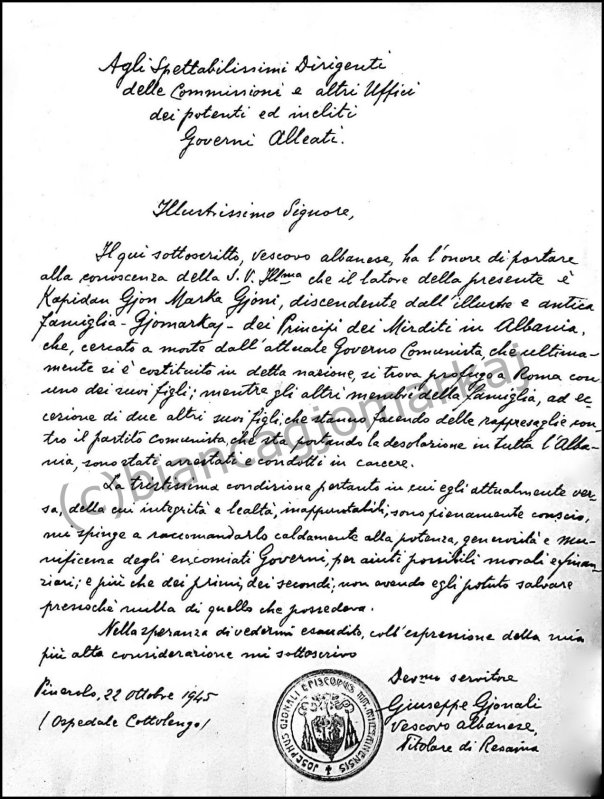 Agli Spettabilissimi Dirigenti
delle Commissioni e altri Uffici
dei potenti ed incliti
Governi Alleati.
Illustrissimo Signore,
Il qui sottoscritto, vescovo albanese, ha l'onore di portare
alla conoscenza della S. V. Ill.ma che il latore della presente è
Kapidan Gjon Marka Gjoni, discendente dall'illustre e antica
famiglia - Gjomarkaj - dei Principi dei Mirditi in Albania,
che, cercato a morte dall'attuale Governo Comunista, che ultima-
mente si è costituito in detta nazione, si trova profugo a Roma con
uno dei suoi figli; mentre gli altri membri della famiglia, ad ec
cezione di due altri suoi figli, che stanno facendo delle rappresaglie con
tro il partito comunista, che sta portando la desolazione in tutta l'Alba-
nia, sono stati arrestati e condotti in carcere.
La tristissima condizione pertanto in cui egli attualmente ver-
sa, della cui integrità e lealtà, inappuntabili, sono pienamente conscio,
mi spinge a raccomandarlo caldamente alla potenza, generosità e mu-
nificenza degli encomiati Governi, per aiuti possibili morali e finan-
ziari; e più che dei primi, dei secondi, non avendo egli potuto salvare
pressochè nulla di quello che possedeva.
Nella speranza di vedermi esaudito, coll'espressione della mia
più alta considerazione mi sottoscrivo
Dev.mo servitore
Pinerolo, 22 ottobre 1945
Giuseppe Gjonali
(Ospedale Cottolengo)
Vescovo albanese,
Titolare di Resaina
JOSEPHUS GJONALI EPISCOPUS
(c)biancagjomarkaj